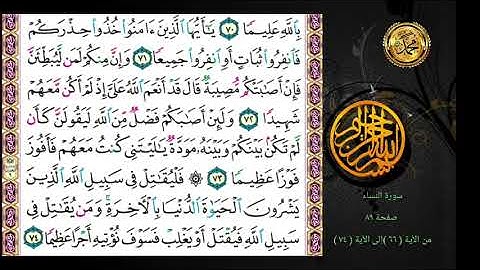 بِٱللَّهِ عَلِيمٗا ٧٠ يَٰٓأَيُّهَا ٱلَّذِينَ ءَامَنُواْ خُذُواْ حِذۡرَكُمۡ
فَٱنفِرُواْ ثُبَاتٍ أَوِ ٱنفِرُواْ جَمِيعٗا ٧١ وَإِنَّ مِنكُمۡ لَمَن لَّيُبَطِّئَنَّ
فَإِنۡ أَصَٰبَتۡكُم مُّصِيبَةٞ قَالَ قَدۡ أَنۡعَمَ ٱللَّهُ عَلَيَّ إِذۡ لَمۡ أَكُن مَّعَهُمۡ
شَهِيدٗا ٧٢ وَلَئِنۡ أَصَٰبَكُمۡ فَضۡلٞ مِّنَ ٱللَّهِ لَيَقُولَنَّ كَأَن
لَّمۡ تَكُنۢ بَيۡنَكُمۡ وَبَيۡنَهُۥ مَوَدَّةٞ يَٰلَيۡتَنِي كُنتُ مَعَهُمۡ فَأَفُوزَ
فَوۡزًا عَظِيمٗا ٧٣ ۞ فَلۡيُقَٰتِلۡ فِي سَبِيلِ ٱللَّهِ ٱلَّذِينَ
يَشۡرُونَ ٱلۡحَيَوٰةَ ٱلدُّنۡيَا بِٱلۡأٓخِرَةِۚ وَمَن يُقَٰتِلۡ فِي
سَبِيلِ ٱللَّهِ فَيُقۡتَلۡ أَوۡ يَغۡلِبۡ فَسَوۡفَ نُؤۡتِيهِ أَجۡرًا عَظِيمٗا ٧٤
محمد
بسم الله الرحمن الرحيم
سورة النساء
صفحة ٨٩
من الآية ( ٦٦ ) إلى الآية ( ٧٤ )